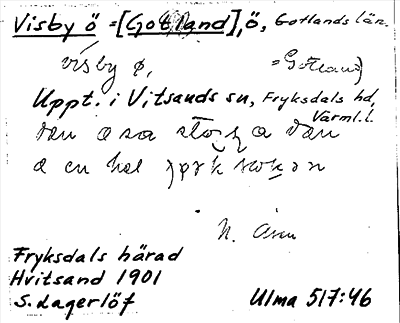 Visby ö = [Gotland], ö, Gotlands län.
visby ø, = Gotland)
Uppt. i Vitsands sn, Fryksdals hd,
Värml. l.
den
a en hel
N.
Fryksdals härad
Hvitsand 1901
S. Lagerlöf
Ulma 517:46